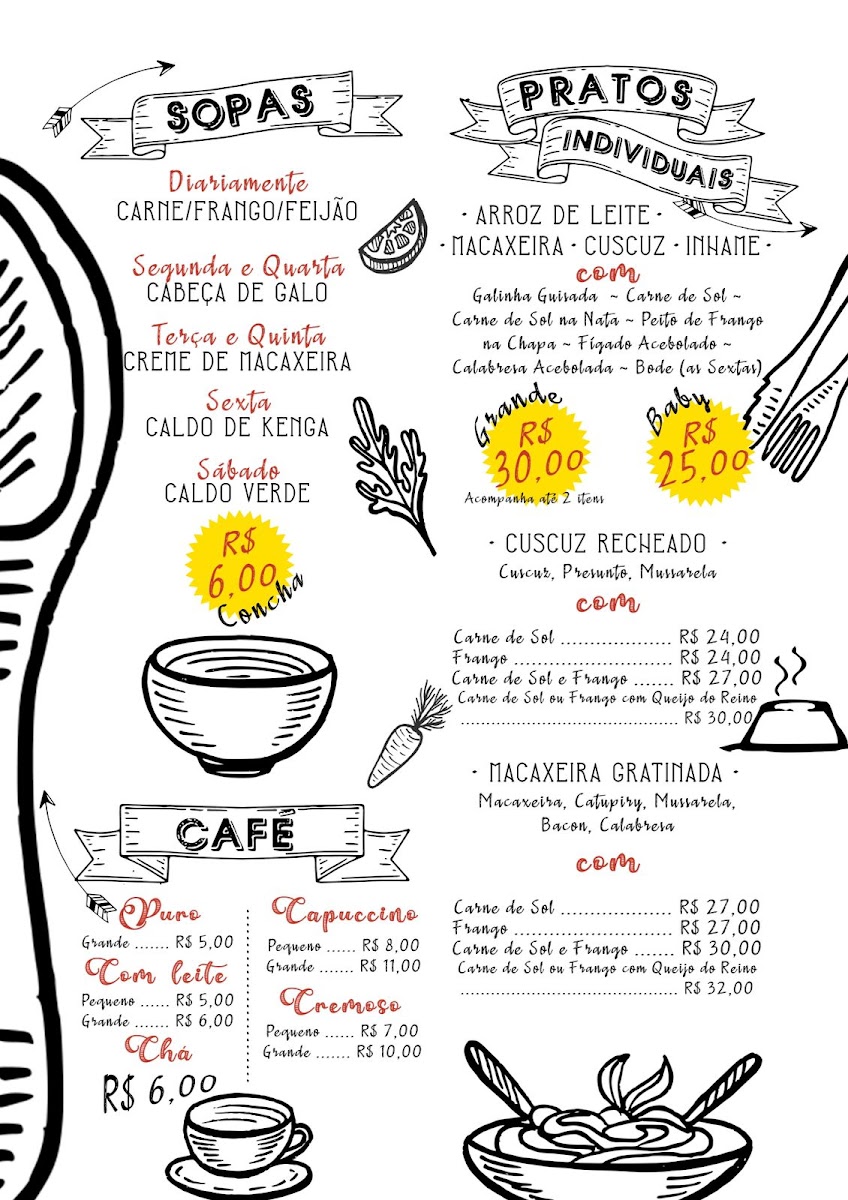 SOPAS
Diariamente
CARNE/FRANGO/FEIJÃO
Segunda e Quarta
CABEÇA DE GALO
Terça e Quinta
CREME DE MACAXEIRA
Sexta
CALDO DE KENGA
Sábado
CALDO VERDE
R$
6,00
Concha
CAFÉ
Puro
Grande ....... R$ 5,00
Com leite
Pequeno ...... R$ 5,00
Grande ....... R$ 6,00
Chá
R$ 6,00
Capuccino
Pequeno ...... R$ 8,00
Grande ....... R$ 11,00
Cremoso
Pequeno ..... R$ 7,00
Grande ....... R$ 10,00
PRATOS
INDIVIDUAIS
· ARROZ DE LEITE ·
· MACAXEIRA · CUSCUZ · INHAME ·
com
Galinha Guisada ~ Carne de Sol ~
Carne de Sol na Nata ~ Peito de Frango
na Chapa ~ Fígado Acebolado ~
Calabresa Acebolada ~ Bode (as Sextas)
Grande
R$
30,00
Acompanha até 2 itens
Baby
R$
25,00
· CUSCUZ RECHEADO ·
Cuscuz, Presunto, Mussarela
com
Carne de Sol .................... R$ 24,00
Frango ............................. R$ 24,00
Carne de Sol e Frango ....... R$ 27,00
Carne de Sol ou Frango com Queijo do Reino
........................................ R$ 30,00
· MACAXEIRA GRATINADA ·
Macaxeira, Catupiry, Mussarela,
Bacon, Calabresa
com
Carne de Sol .................... R$ 27,00
Frango ............................. R$ 27,00
Carne de Sol e Frango ....... R$ 30,00
Carne de Sol ou Frango com Queijo do Reino
........................................ R$ 32,00